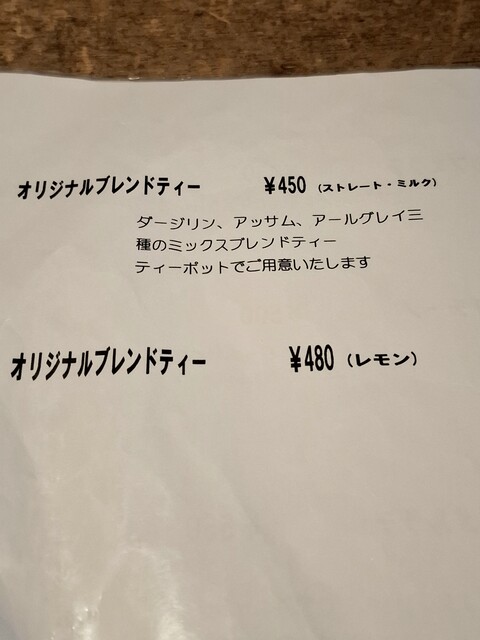 オリジナルブレンドティー ¥450 (ストレート・ミルク)
ダージリン、アッサム、アールグレイ三
種のミックスブレンドティー
ティーポットでご用意いたします
オリジナルブレンドティー ¥480 (レモン)